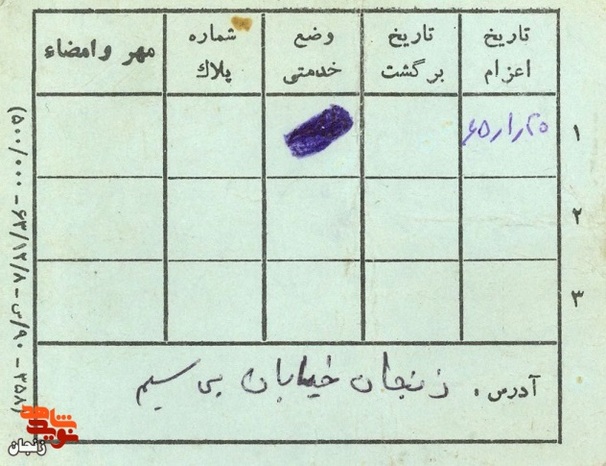 تاریخ اعزام
تاریخ برگشت
وضع خدمتی
شماره پلاک
مهر و امضاء
۱
۲
۳
آدرس: زنجان خیابان بی سیم
(۳۵۸ - ۹۰/س - ۶۳/۱۲/۸ - ۵۰۰/۰۰۰)
نوید شاهد
زنجان